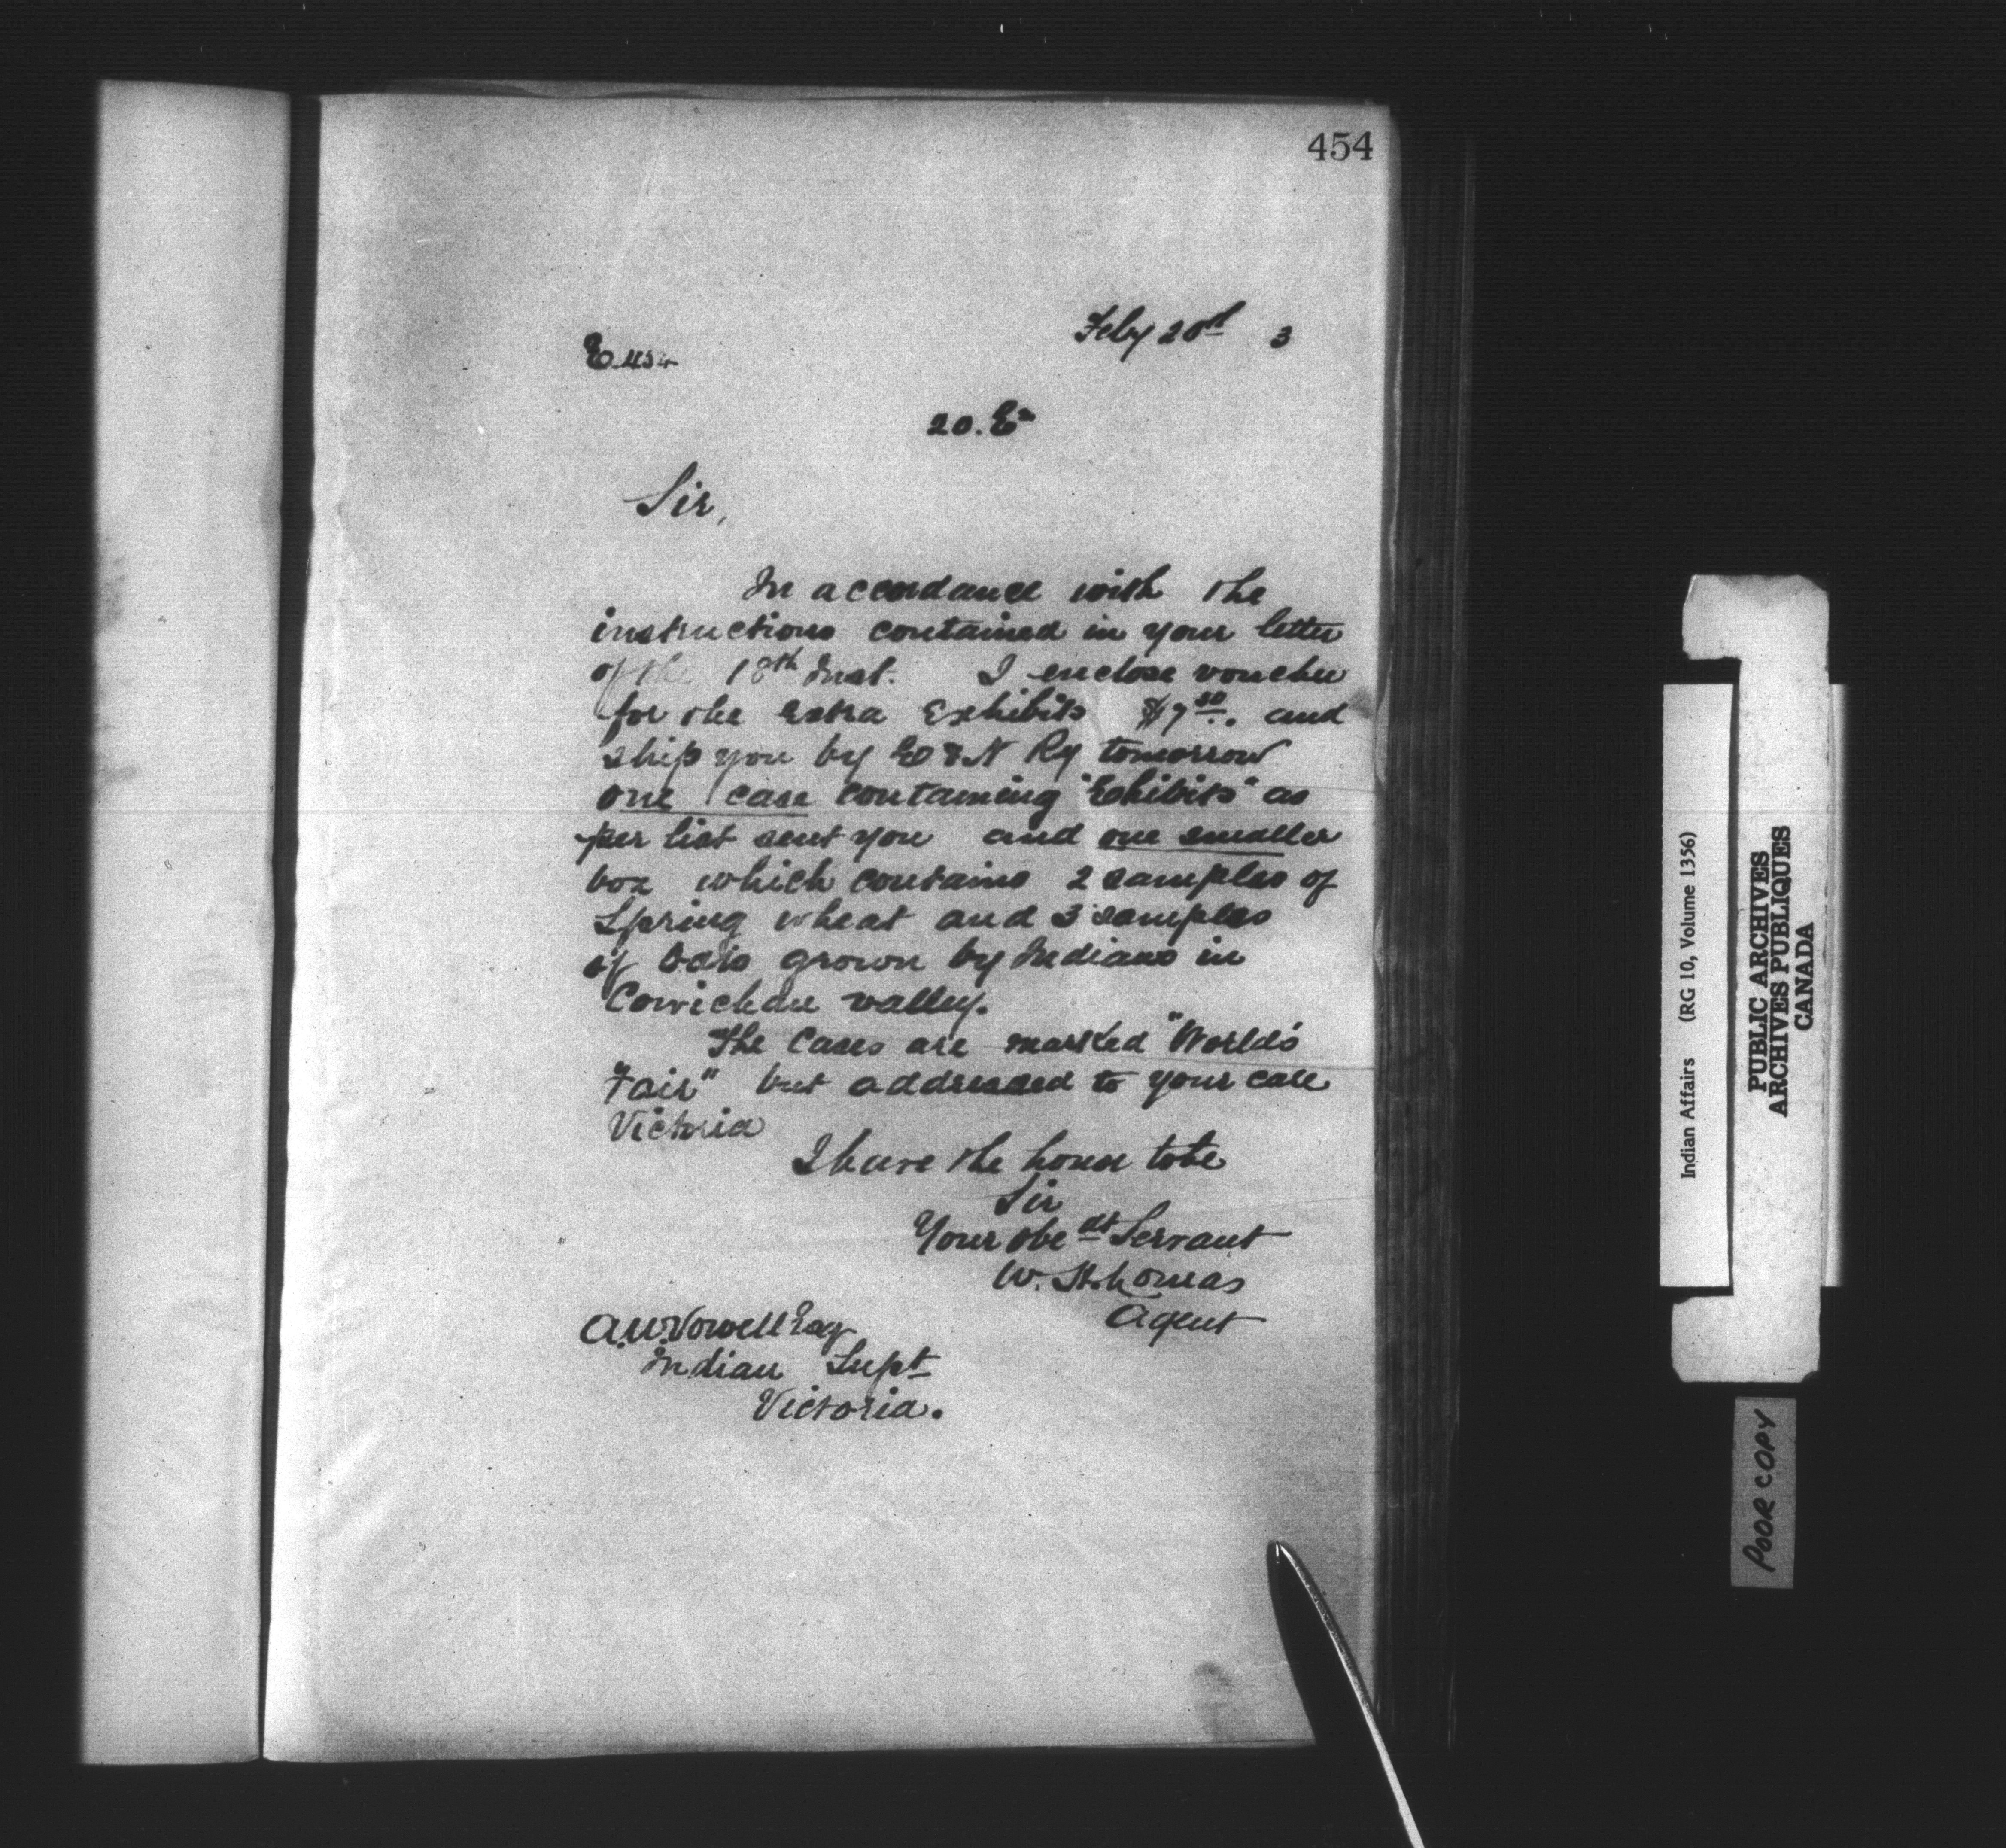 454
Feby 20d 3
E.454
20.E
Sir,
In accordance with the
instructions contained in your letter
of the 18th Inst. I enclose voucher
for the extra Exhibits $7 and
ship you by E & N Ry tomorrow
one case containing "Exhibits" as
per list sent you and one smaller
box which contains 2 samples of
Spring wheat and 3 samples
of Oats grown by Indians in
Cowichan valley.
The Cases are marked "World's
Fair" but addressed to your care
Victoria
I have the honor to be
Sir
Your obedt Servant
W. H. Lomas
Agent
A.W. Vowell Esq
Indian Supt
Victoria.
Indian Affairs (RG 10, Volume 1356)
PUBLIC ARCHIVES
ARCHIVES PUBLIQUES
CANADA
POOR COPY